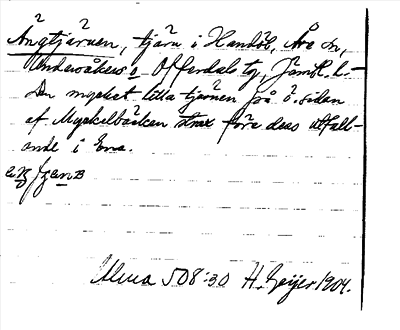 Ängtjärnen, tjärn i Handöl, Åre sn,
Undersåkers o Offerdals tg, Jämtl. l. –
Den mycket lilla tjärnen på ö. sidan
af Myckelbäcken strax före dess utfall-
ande i Enn.
Ulma 508:30 H. Geijer 1904.